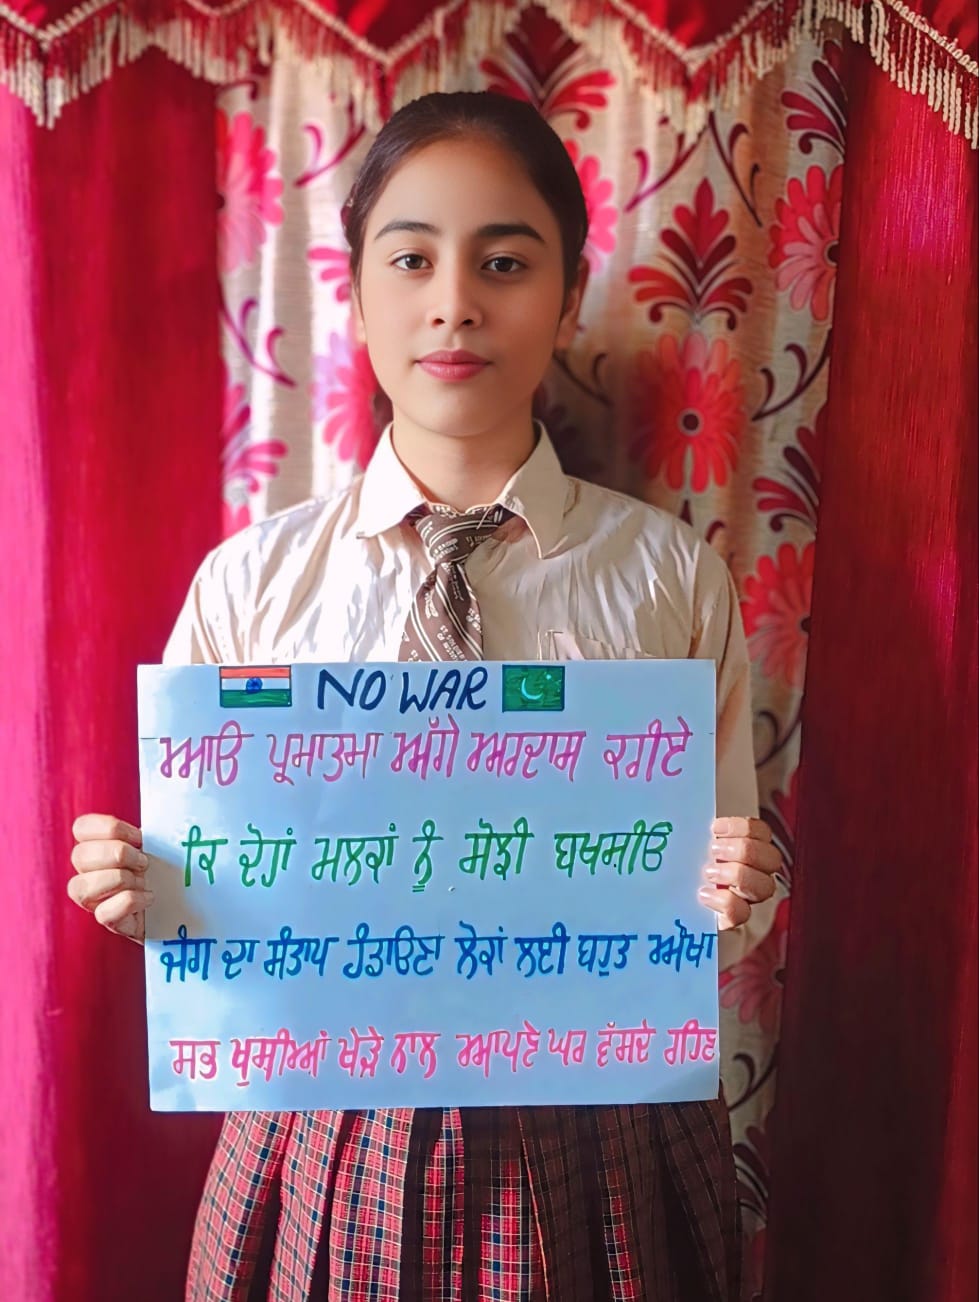 NO WAR
ਆਓ ਪ੍ਰਮਾਤਮਾ ਅੱਗੇ ਅਰਦਾਸ ਕਰੀਏ
ਕਿ ਦੋਹਾਂ ਮਲਕਾਂ ਨੂੰ ਸੋਝੀ ਬਖਸੀਓ
ਜੰਗ ਦਾ ਸੰਤਾਪ ਹੰਡਾਉਣਾ ਲੋਕਾਂ ਲਈ ਬਹੁਤ ਔਖਾ
ਸਭ ਖੁਸੀਆਂ ਖੇੜੇ ਨਾਲ ਆਪਣੇ ਘਰ ਵੱਸਦੇ ਰਹਿਣ